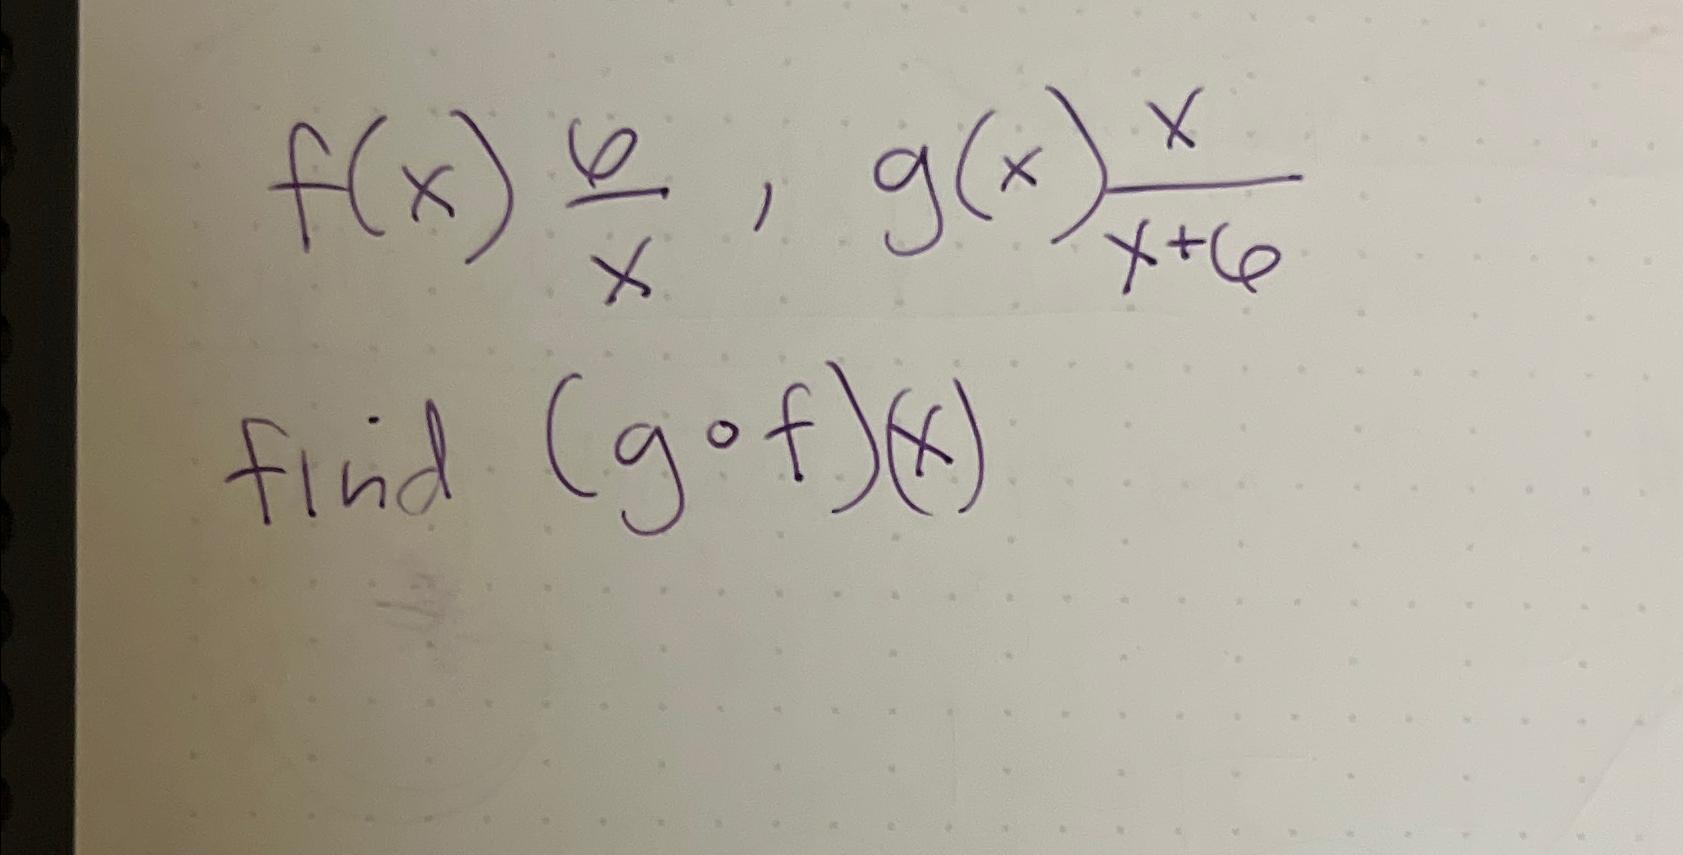 f(x) 6/x , g(x) x/x+6
find (g∘f)(x)